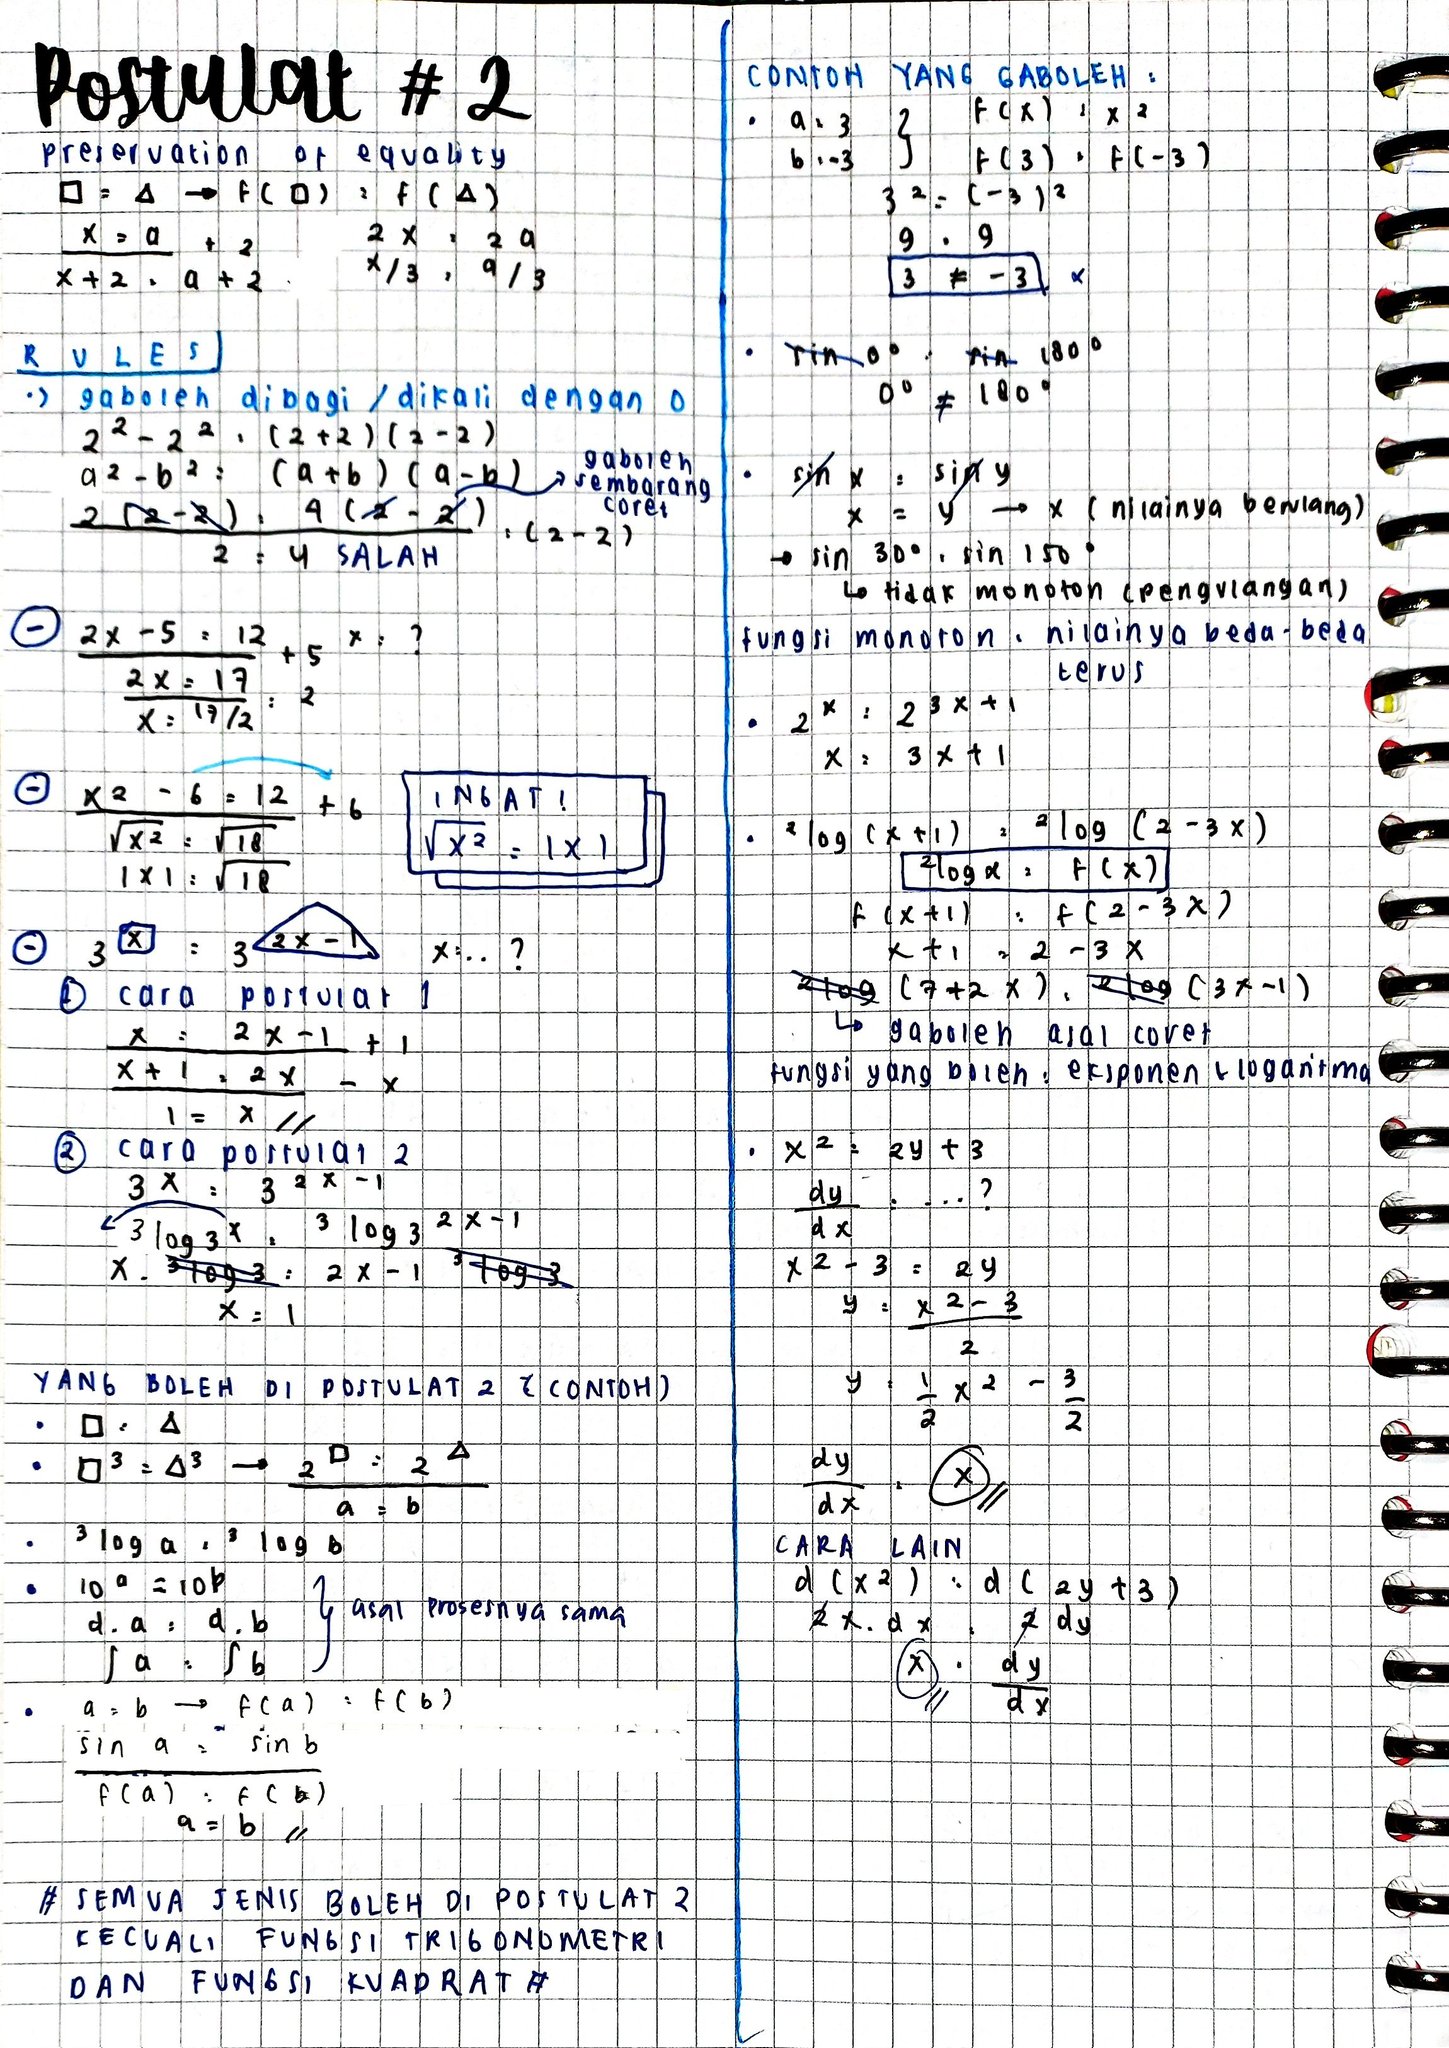 Postulat #2
preservation of equality
□ = △ → f(□) = f(△)
x = a + 2
x + 2 = a + 2
2x = 2a
x/3 = a/3
RULES
•) gaboleh dibagi/dikali dengan 0
2² - 2² = (2+2)(2-2)
a² - b² = (a+b)(a-b)
gaboleh sembarang coret
2(2-2) = 4(2-2) : (2-2)
2 = 4 SALAH
⊖ 2x - 5 = 12 + 5 x = ?
2x = 17 : 2
x = 17/2
⊖ x² - 6 = 12 + 6
√x² = √18
|x| = √18
INGAT!
√x² = |x|
⊖ 3^x = 3^(2x-1) x = .. ?
① cara postulat 1
x = 2x - 1 + 1
x + 1 = 2x - x
1 = x //
② cara postulat 2
3^x = 3^(2x-1)
³log 3^x = ³log 3^(2x-1)
x . ³log 3 = 2x - 1 ³log 3
x = 1
YANG BOLEH DI POSTULAT 2 (CONTOH)
• □ = △
• □³ = △³ → 2^□ = 2^△
a = b
• ³log a = ³log b
• 10^a = 10^b
d.a = d.b
∫a = ∫b
} asal prosesnya sama
• a = b → f(a) = f(b)
sin a = sin b
f(a) = f(b)
a = b //
# SEMUA JENIS BOLEH DI POSTULAT 2
KECUALI FUNGSI TRIGONOMETRI
DAN FUNGSI KUADRAT #
CONTOH YANG GABOLEH :
• a = 3 } f(x) = x²
b = -3 f(3) = f(-3)
3² = (-3)²
9 = 9
3 ≠ -3 x
• sin 0° = sin 180°
0° ≠ 180°
• sin x = sin y
x = y → x (nilainya berulang)
→ sin 30° = sin 150°
↳ tidak monoton (pengulangan)
fungsi monoton = nilainya beda-beda
terus
• 2^x = 2^(3x+1)
x = 3x + 1
• ²log (x+1) = ²log (2-3x)
²log x = f(x)
f(x+1) = f(2-3x)
x + 1 = 2 - 3x
²log (7+2x) = ²log (3x-1)
↳ gaboleh asal coret
fungsi yang boleh = eksponen & logaritma
• x² = 2y + 3
dy/dx = ....?
x² - 3 = 2y
y = (x² - 3)/2
y = 1/2 x² - 3/2
dy/dx = x //
CARA LAIN
d(x²) = d(2y+3)
2x.dx = 2 dy
x = dy/dx //